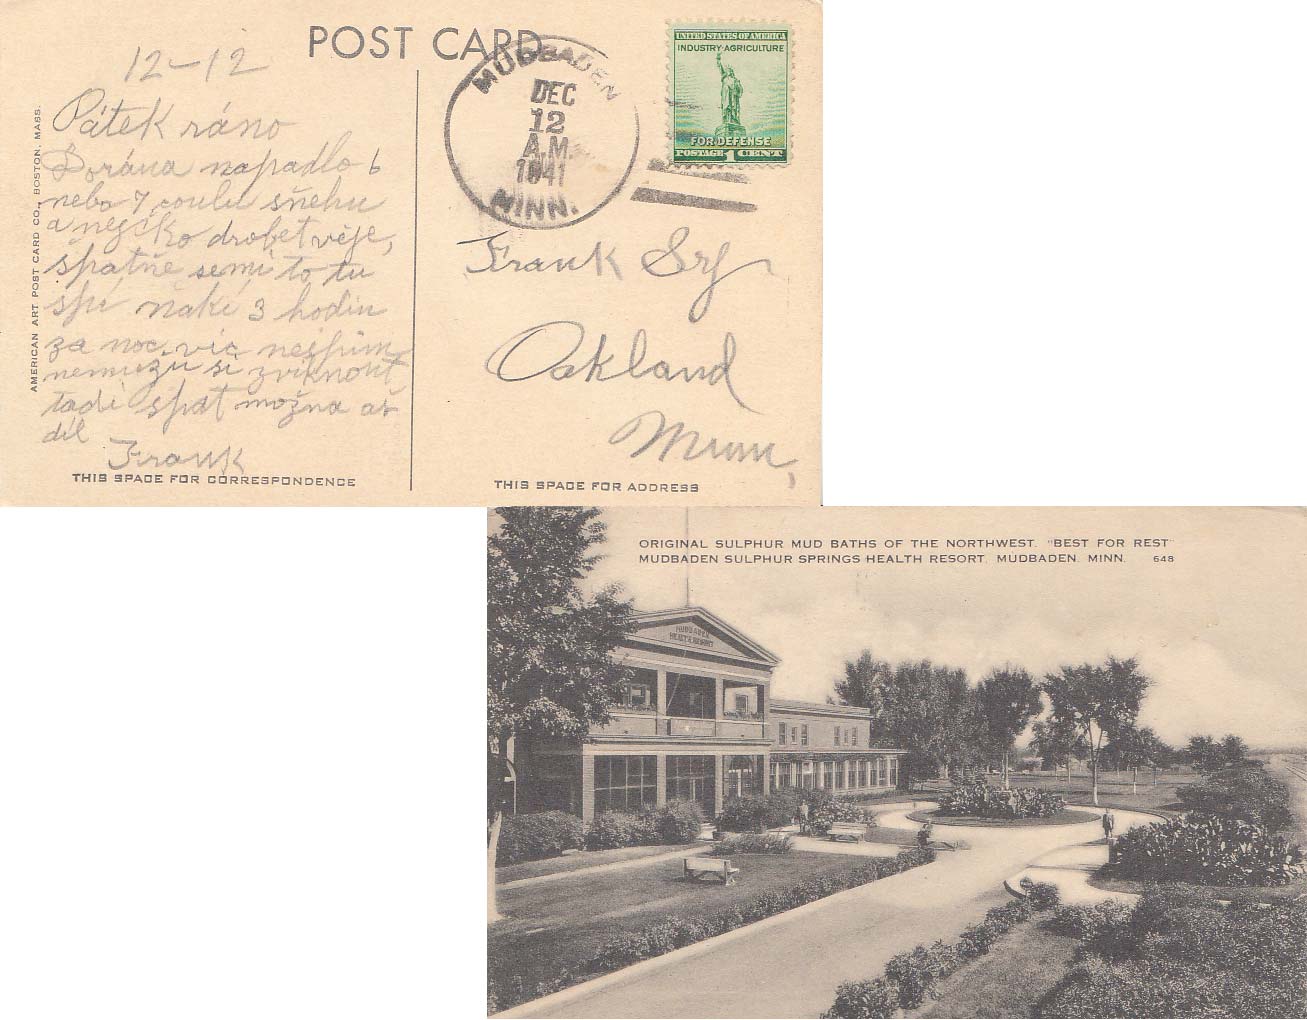 POST CARD
12-12
Pátek ráno
Do rána napadlo 6
nebo 7 coulu sňehu
a nějko drobet věje,
spatňe semi to tu
spí ňaké 3 hodin
za noc víc nespim
nemužu si zviknout
tadi spat možna až
dýl
Frank
THIS SPACE FOR CORRESPONDENCE
AMERICAN ART POST CARD CO., BOSTON, MASS.
MUDBADEN
DEC
12
A.M.
1941
MINN.
UNITED STATES OF AMERICA
INDUSTRY·AGRICULTURE
FOR DEFENSE
POSTAGE 1 CENT
Frank
Oakland
Minn,
THIS SPACE FOR ADDRESS
ORIGINAL SULPHUR MUD BATHS OF THE NORTHWEST. "BEST FOR REST"
MUDBADEN SULPHUR SPRINGS HEALTH RESORT, MUDBADEN, MINN. 648
MUDBADEN
HEALTH RESORT